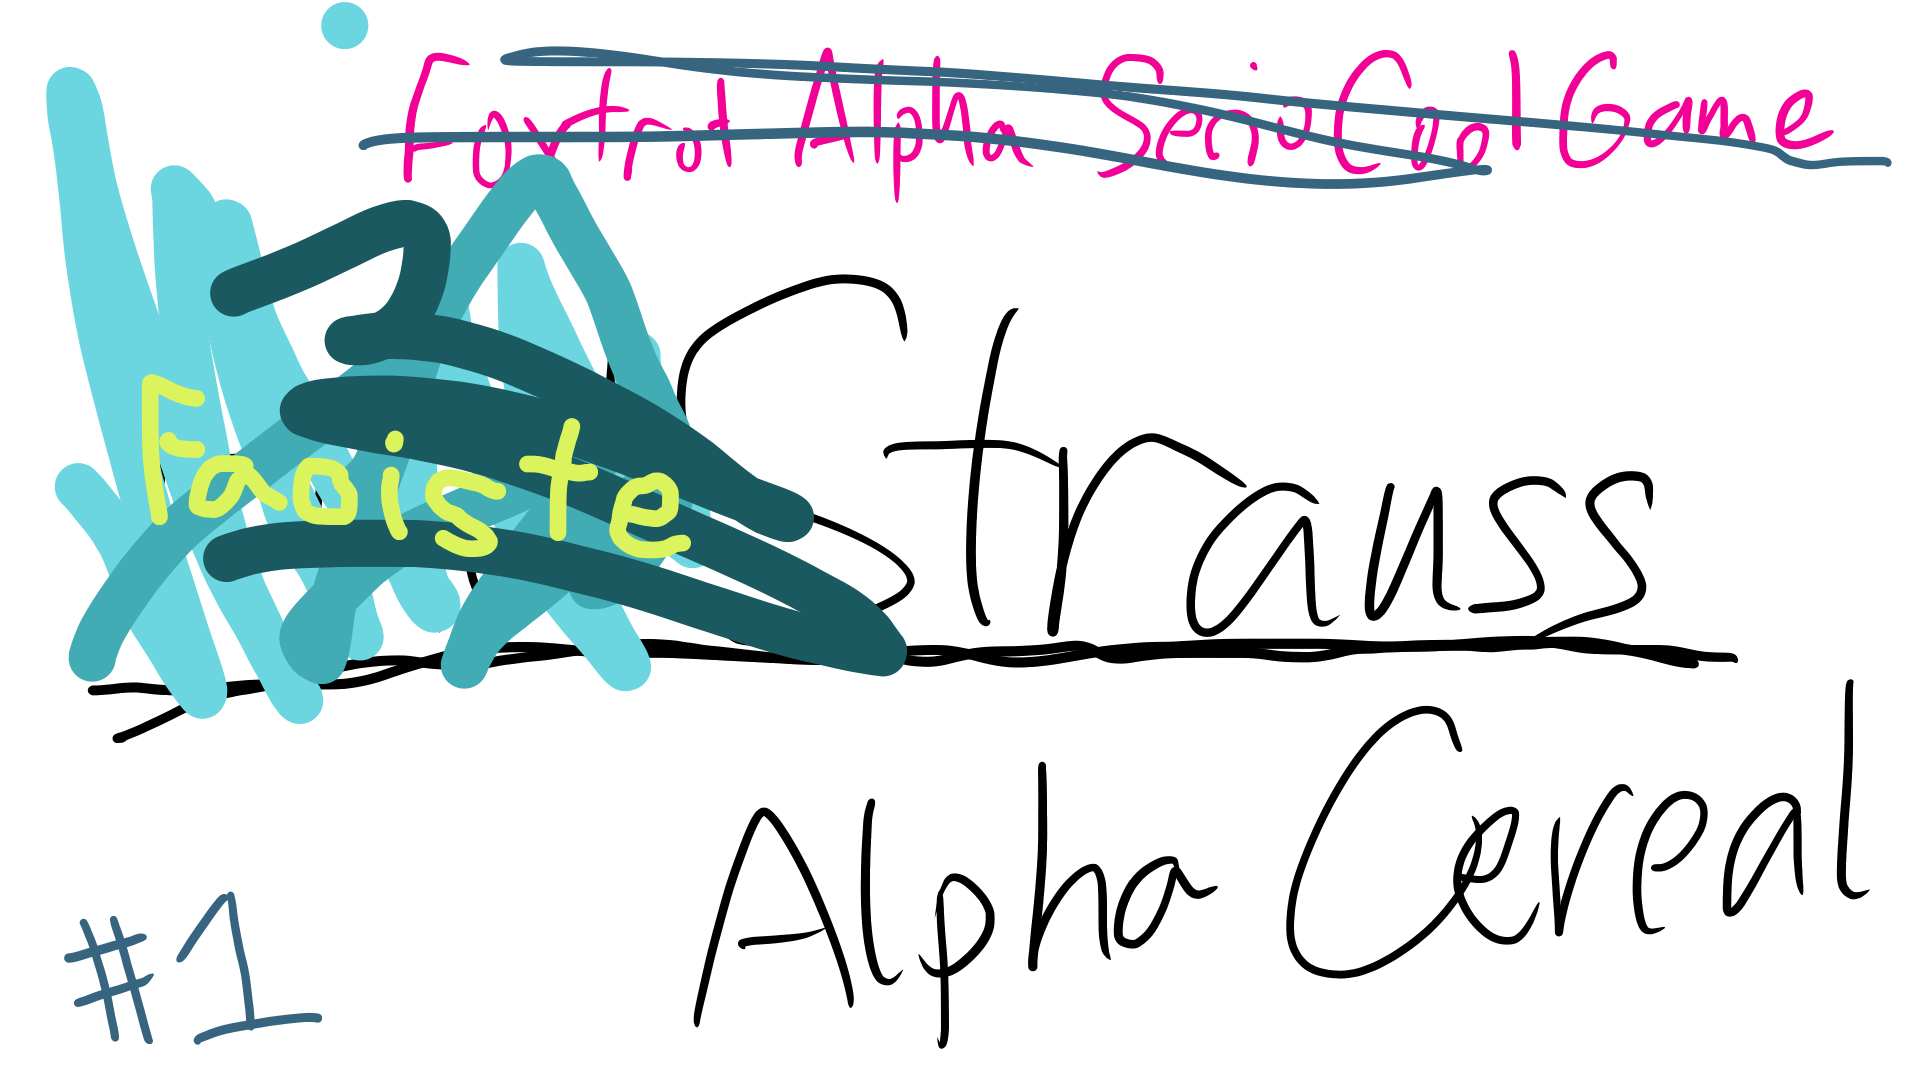 Foxtrot Alpha Serio Cool Game
Faoiste Strauss
Alpha Cereal
#1